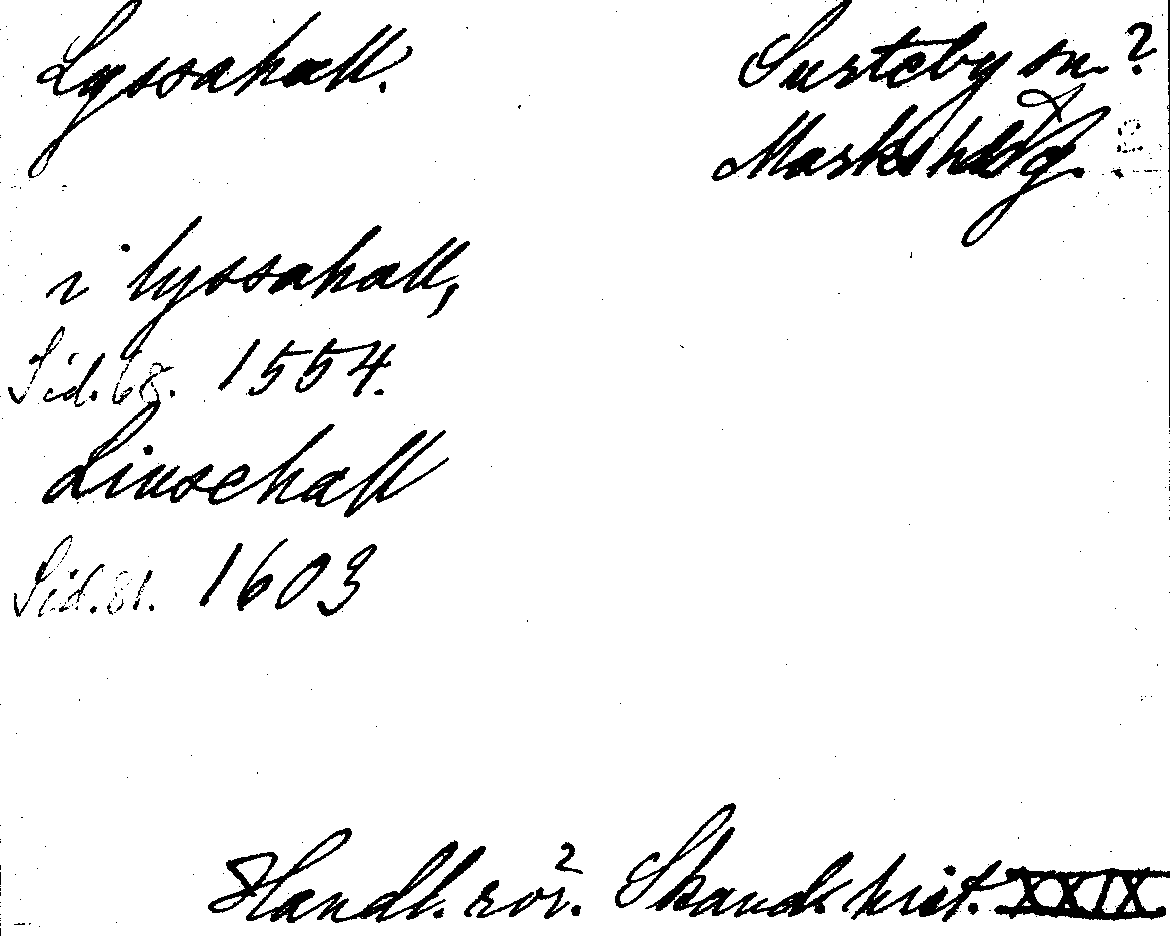 Lyssahall.
Surteby sn.?
Marks hd
i lyssahall,
Sid. 68. 1554.
Linsehall
Sid. 81. 1603
Handl. rör. Skand. hist. XXIX.